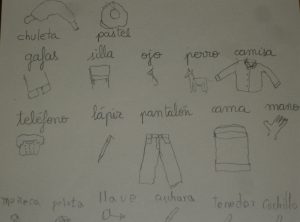 chuleta pastel
gafas silla ojo perro camisa
teléfono lápiz pantalón cama mano
muñeca pelota llave cuchara tenedor cuchillo